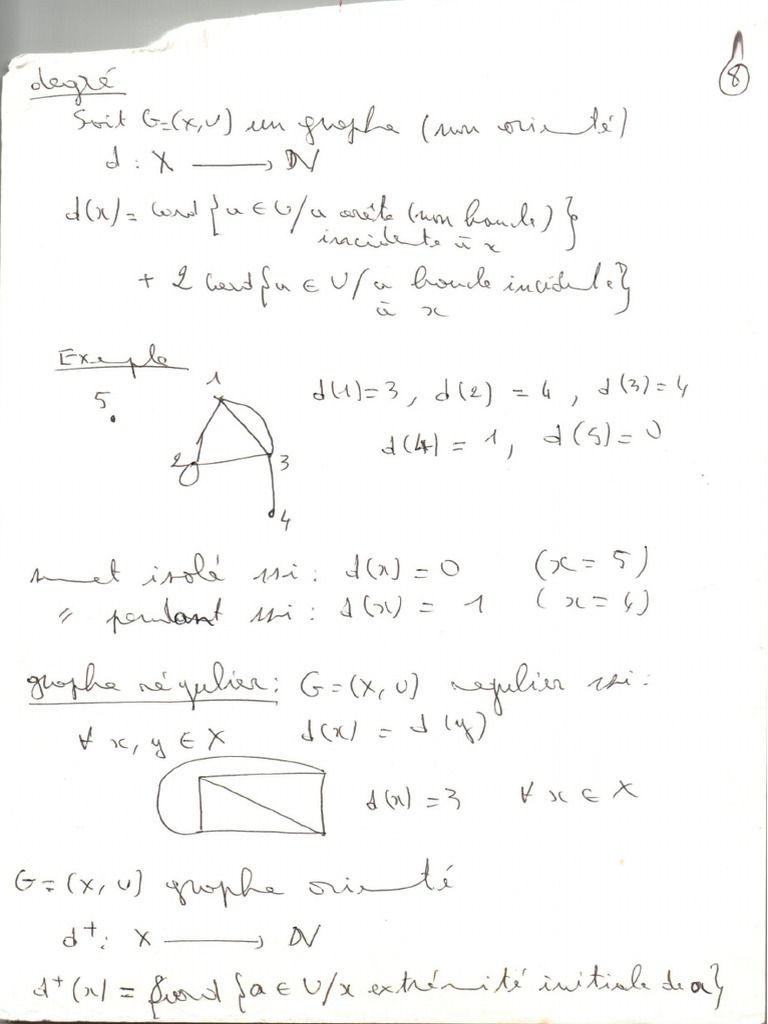 8
degré
Soit G=(X,U) un graphe (non orienté)
d : X ⟶ ℕ
d(x) = card {u ∈ U/u arête (non boucle)
incidente à x}
+ 2 card {u ∈ U/u boucle incidente
à x}
Exemple
1
5
2
3
4
d(1)=3, d(2) = 4, d(3)=4
d(4) = 1, d(5)=0
sommet isolé ssi : d(x) = 0 (x = 5)
" pendant ssi : d(x) = 1 (x = 4)
graphe régulier : G=(X,U) regulier ssi :
∀ x, y ∈ X d(x) = d(y)
d(x) = 3 ∀ x ∈ X
G = (X, U) graphe orienté
d⁺: X ⟶ ℕ
d⁺(x) = card {a ∈ U/x extrémité initiale de a}